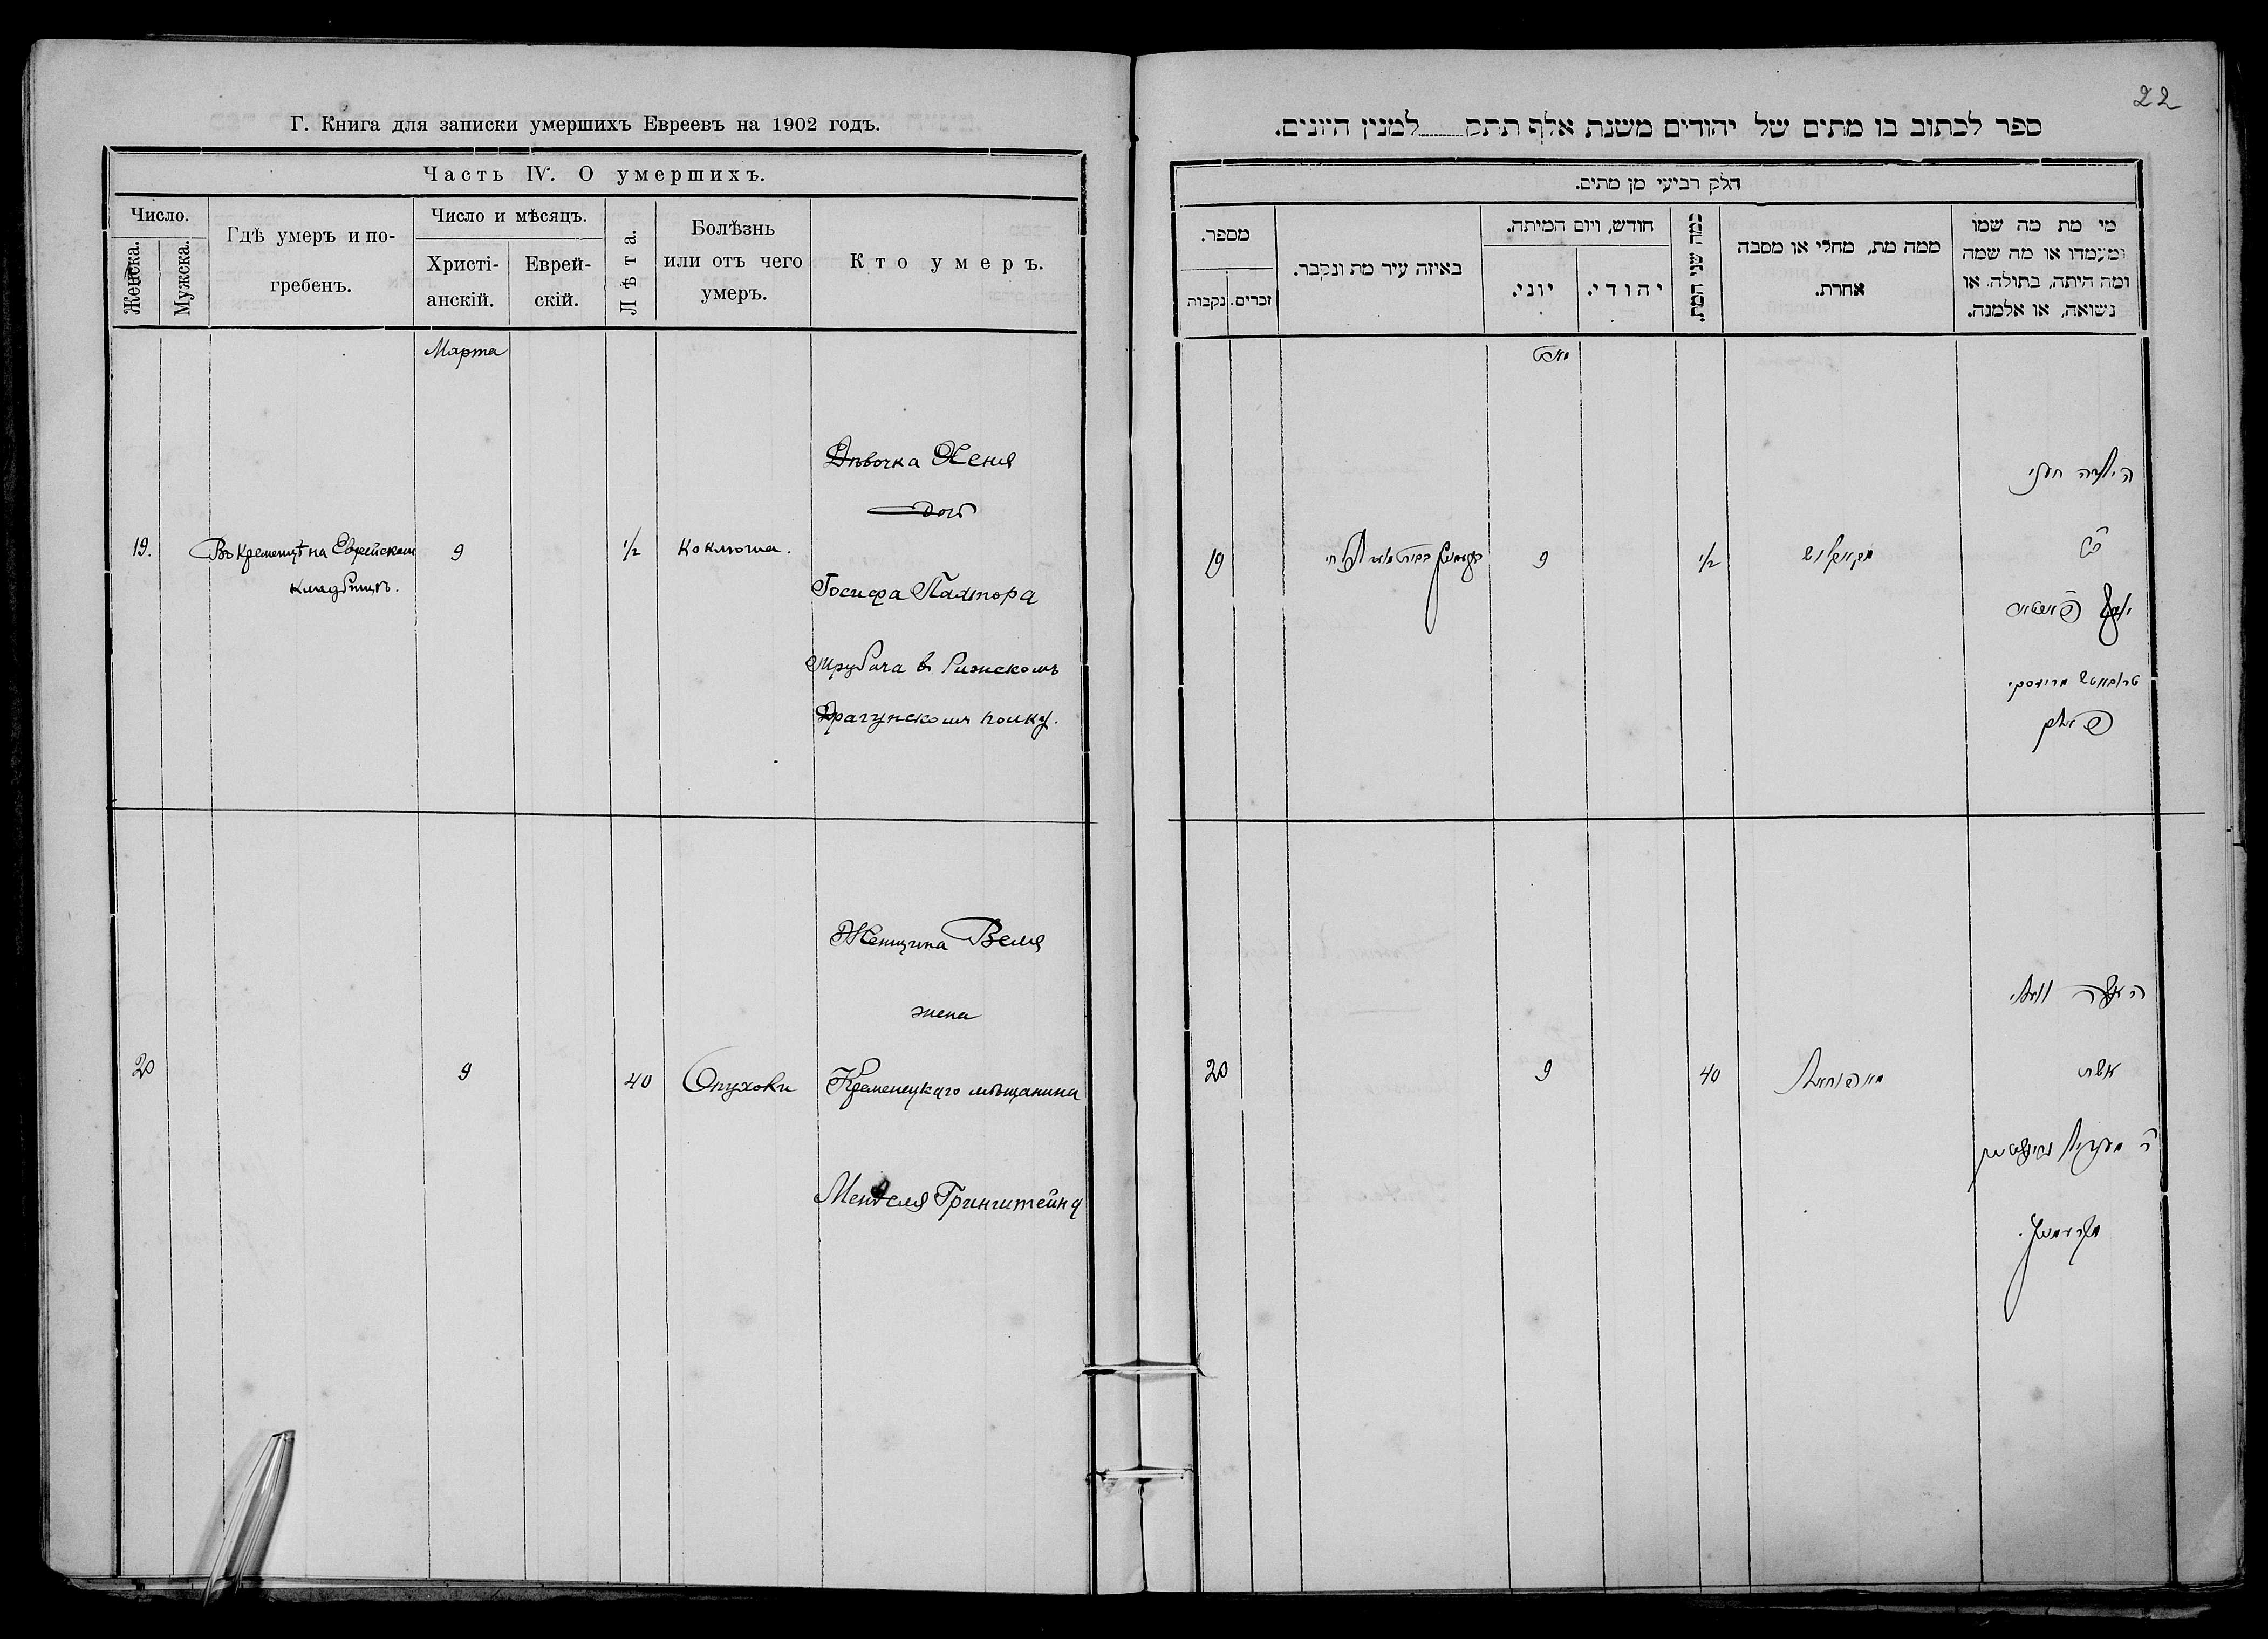 Г. Книга для записки умершихъ Евреевъ на 1902 годъ.
Часть IV. О умершихъ.
Число.
Женска.
Мужска.
Гдѣ умеръ и по-
гребенъ.
Число и мѣсяцъ.
Христі-
анскій.
Еврей-
скій.
Лѣта.
Болѣзнь
или отъ чего
умеръ.
Кто умеръ.
Марта
19.
Въ Кременцѣ на Еврейском
кладбищѣ.
9
1/2
Коклюша.
Дѣвочка Хеня
дочь
Іосифа Пастора
трубача в Рижскомъ
Драгунскомъ полку.
20
9
40
Опухоли
Женщина Веля
жена
Кременецкаго мѣщанина
Менделя Гринштейна
22
ספר לכתוב בו מתים של יהודים משנת אלף תתק למנין היונים.
חלק רביעי מן מתים.
מי מת מה שמו
ומעמדו או מה שמה
ומה היתה, בתולה, או
נשואה, או אלמנה.
ממה מת, מחלי או מסבה
אחרת.
כמה שני המת.
חודש, ויום המיתה.
יהודי.
יוני.
באיזה עיר מת ונקבר.
מספר.
זכרים.
נקבות
מארט
הילדה חעני
בת
יוסף
19
9
1/2
האשה וועלי
אשת
20
9
40